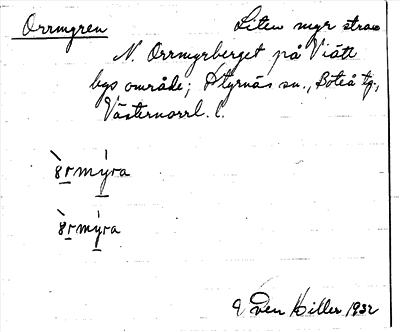 Orrmyren Liten myr strax
N. Orrmyrberget på Viätt
bys område; Styrnäs sn., Boteå tg.,
Västernorrl. l.
`8rmýra
`8rmýra
Den Hiller 1932